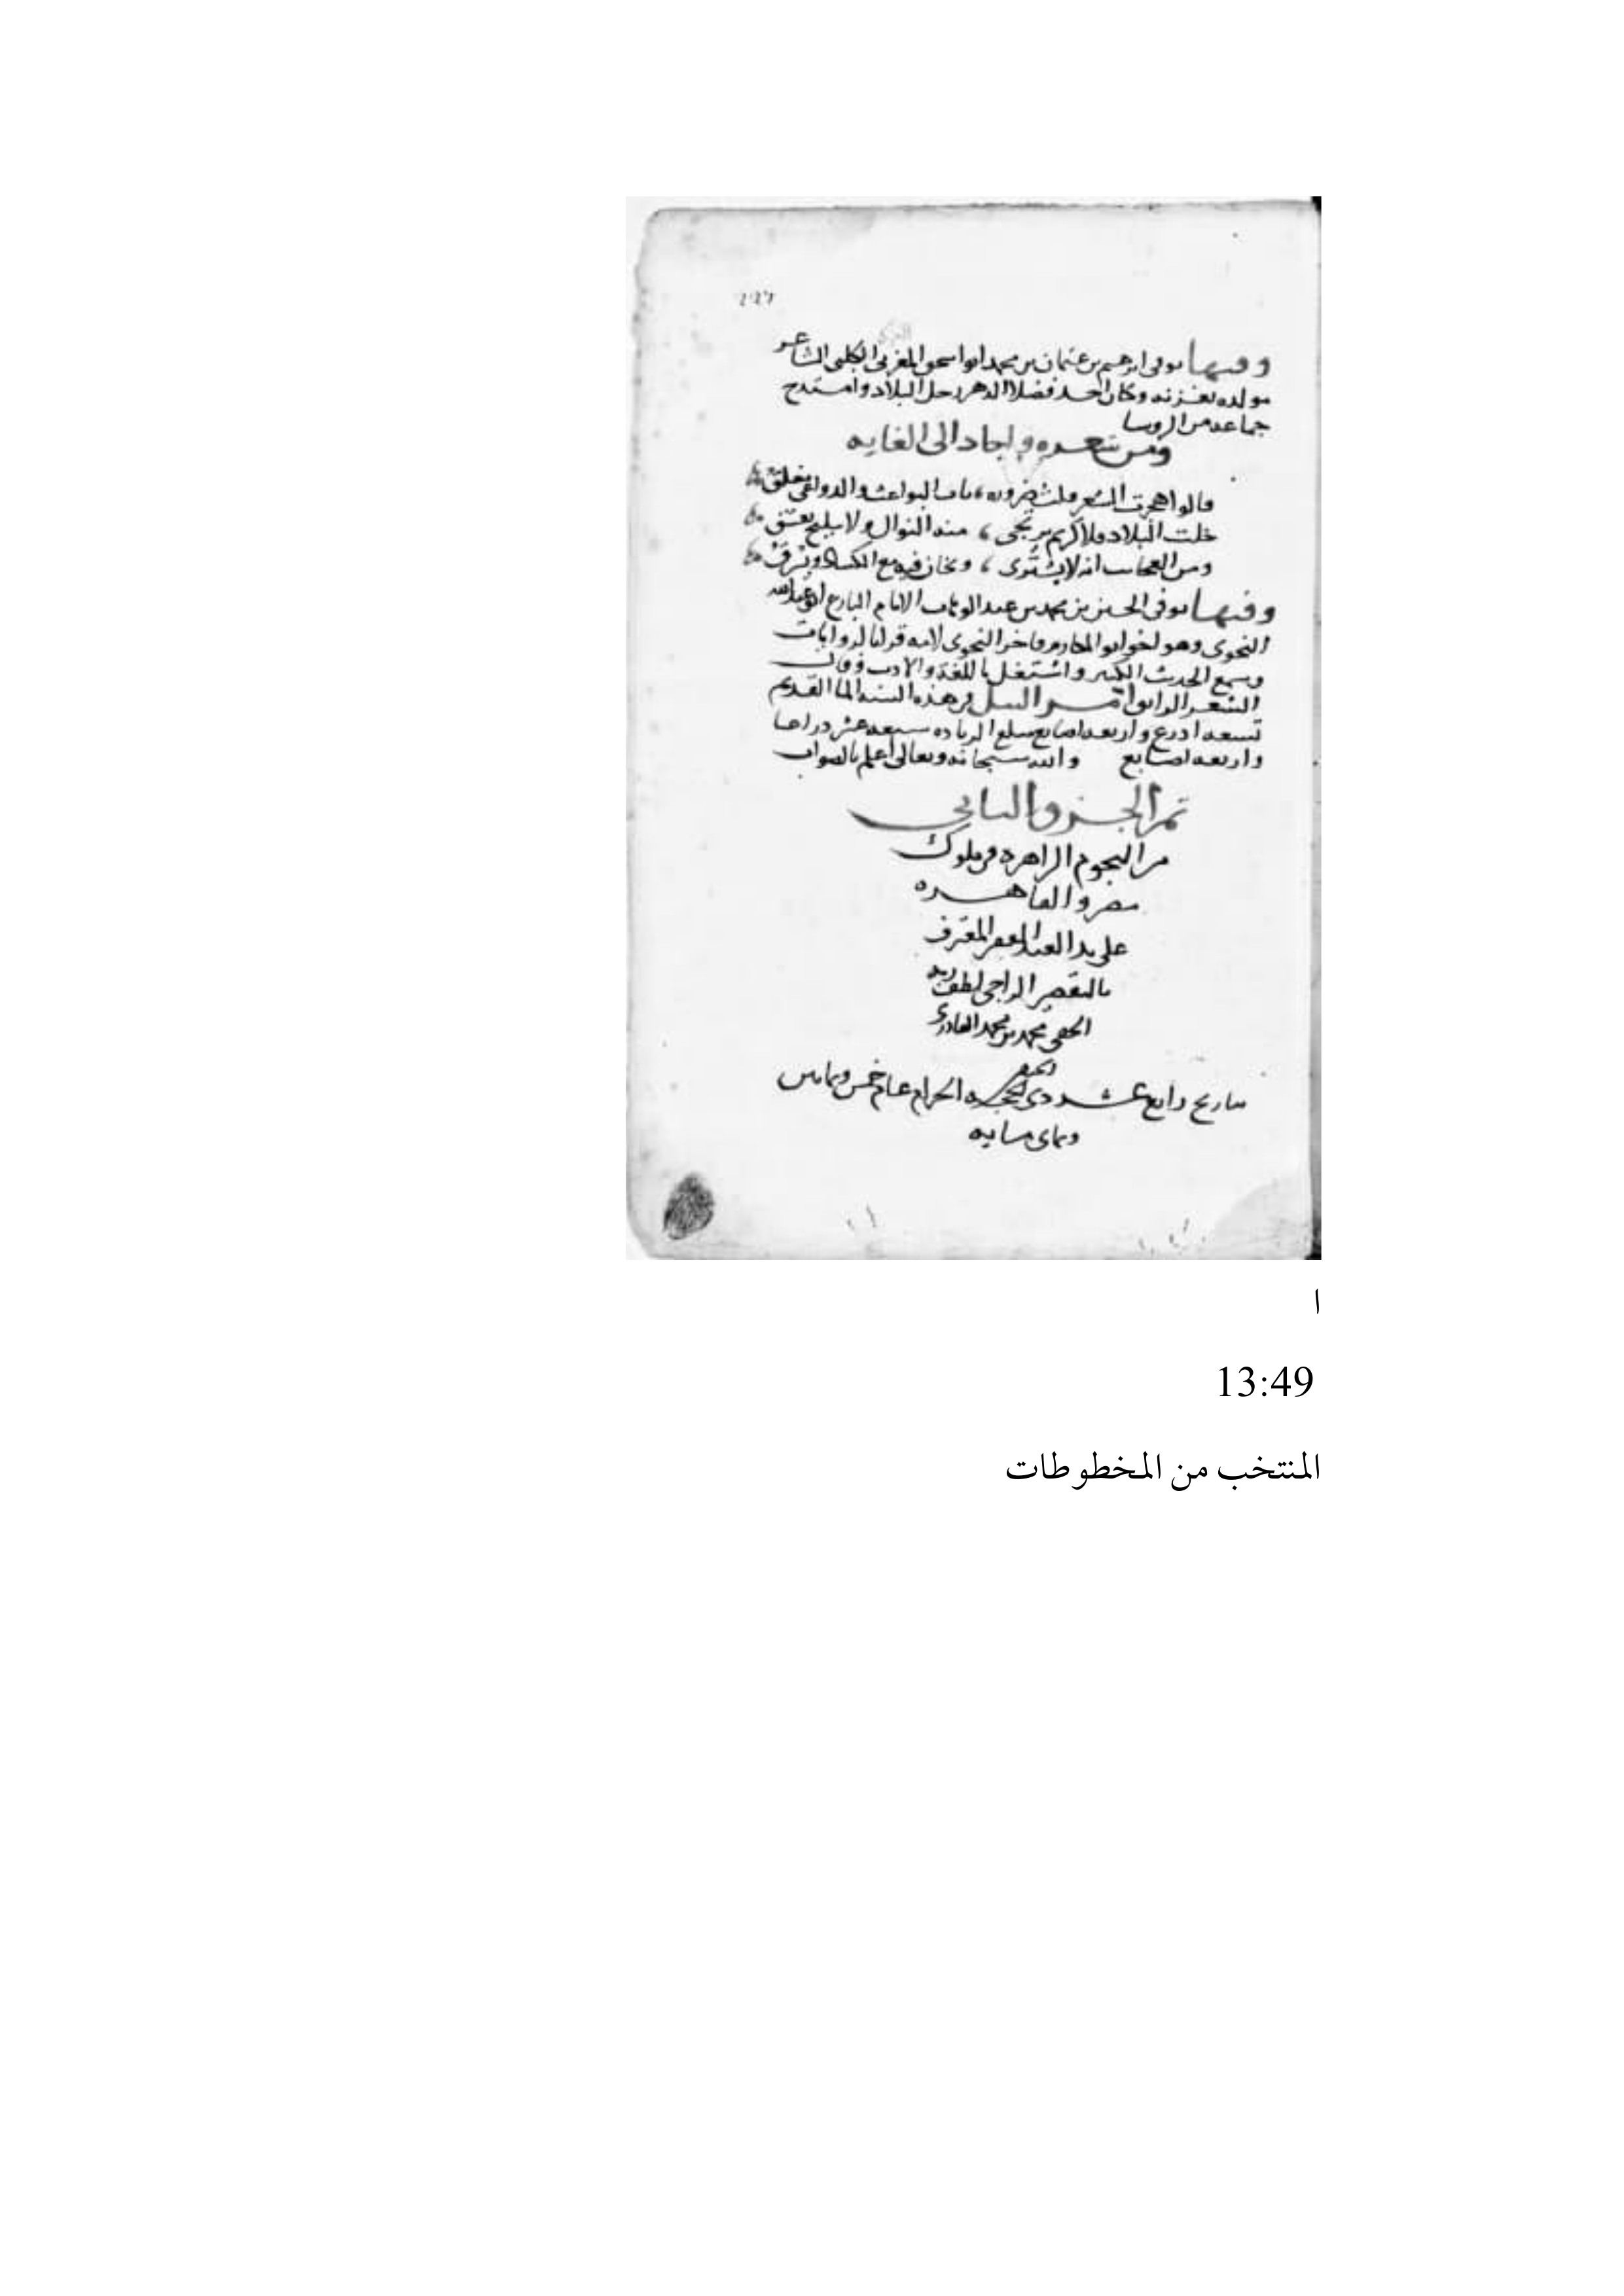 وفيها توفى ابرهيم بن عثمان بن محمد ابو اسحق المغربي الكلبى الشاعر
مولده بغزنه وكان احد فضلا الدهر رحل البلاد وامتدح
جماعه من الروسا
ومن شعره واجاد الى الغايه
قالوا هجرت الشعر قلت ضروره ، باب البواعث والدواعى مغلق
خلت البلاد فلا كريم يرتجى ، منه النوال ولا مليح يعشق
ومن العجائب انه لا يشترى ، ويخان فيه مع الكساد ويسرق
وفيها توفى الحسين بن محمد بن عبد الوهاب الامام البارع ابو عبد الله
النحوى وهو اخو ابو المكارم فاخر النحوى لامه قرا بالروايات
وسمع الحديث الكثير واشتغل باللغة والادب وقال
الشعر الرايق امر النيل في هذه السنه الما القديم
تسعه اذرع واربعه اصابع مبلغ الزياده سبعه عشر دراعا
واربعه اصابع والله سبحانه وتعالى اعلم بالصواب
تم الجزو الثاني
من النجوم الزاهره في ملوك
مصر والقاهره
على يد العبد الفقير المعترف
بالتقصير الراجى لطف ربه
الخفى محمد بن محمد القادرى
الحنفى
بتاريخ رابع عشر ذى الحجه الحرام عام خمس وثمانين
وثمان مايه
ا
13:49
المنتخب من المخطوطات